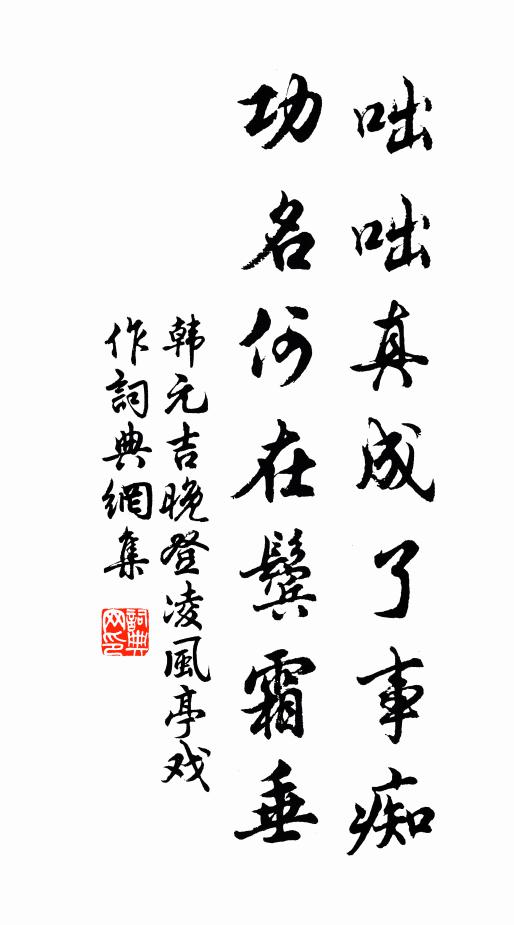 咄咄真成了事痴
功名何在鬓霜垂
韩元吉晚登凌風亭戏
作詞典網集
詞典网印